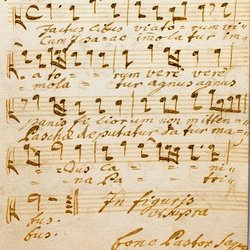 factus cibus viato = rum vi =
Cum Isaac immola = tur
a to = rum vere vere
mola = tur agnus agnus
Panis filiorum non mitten =
Paschæ deputatur datur ma =
= dus ca = ni =
= na Pa = tri =
bus.
bus.
In figuris
ut supra
bone Pastor